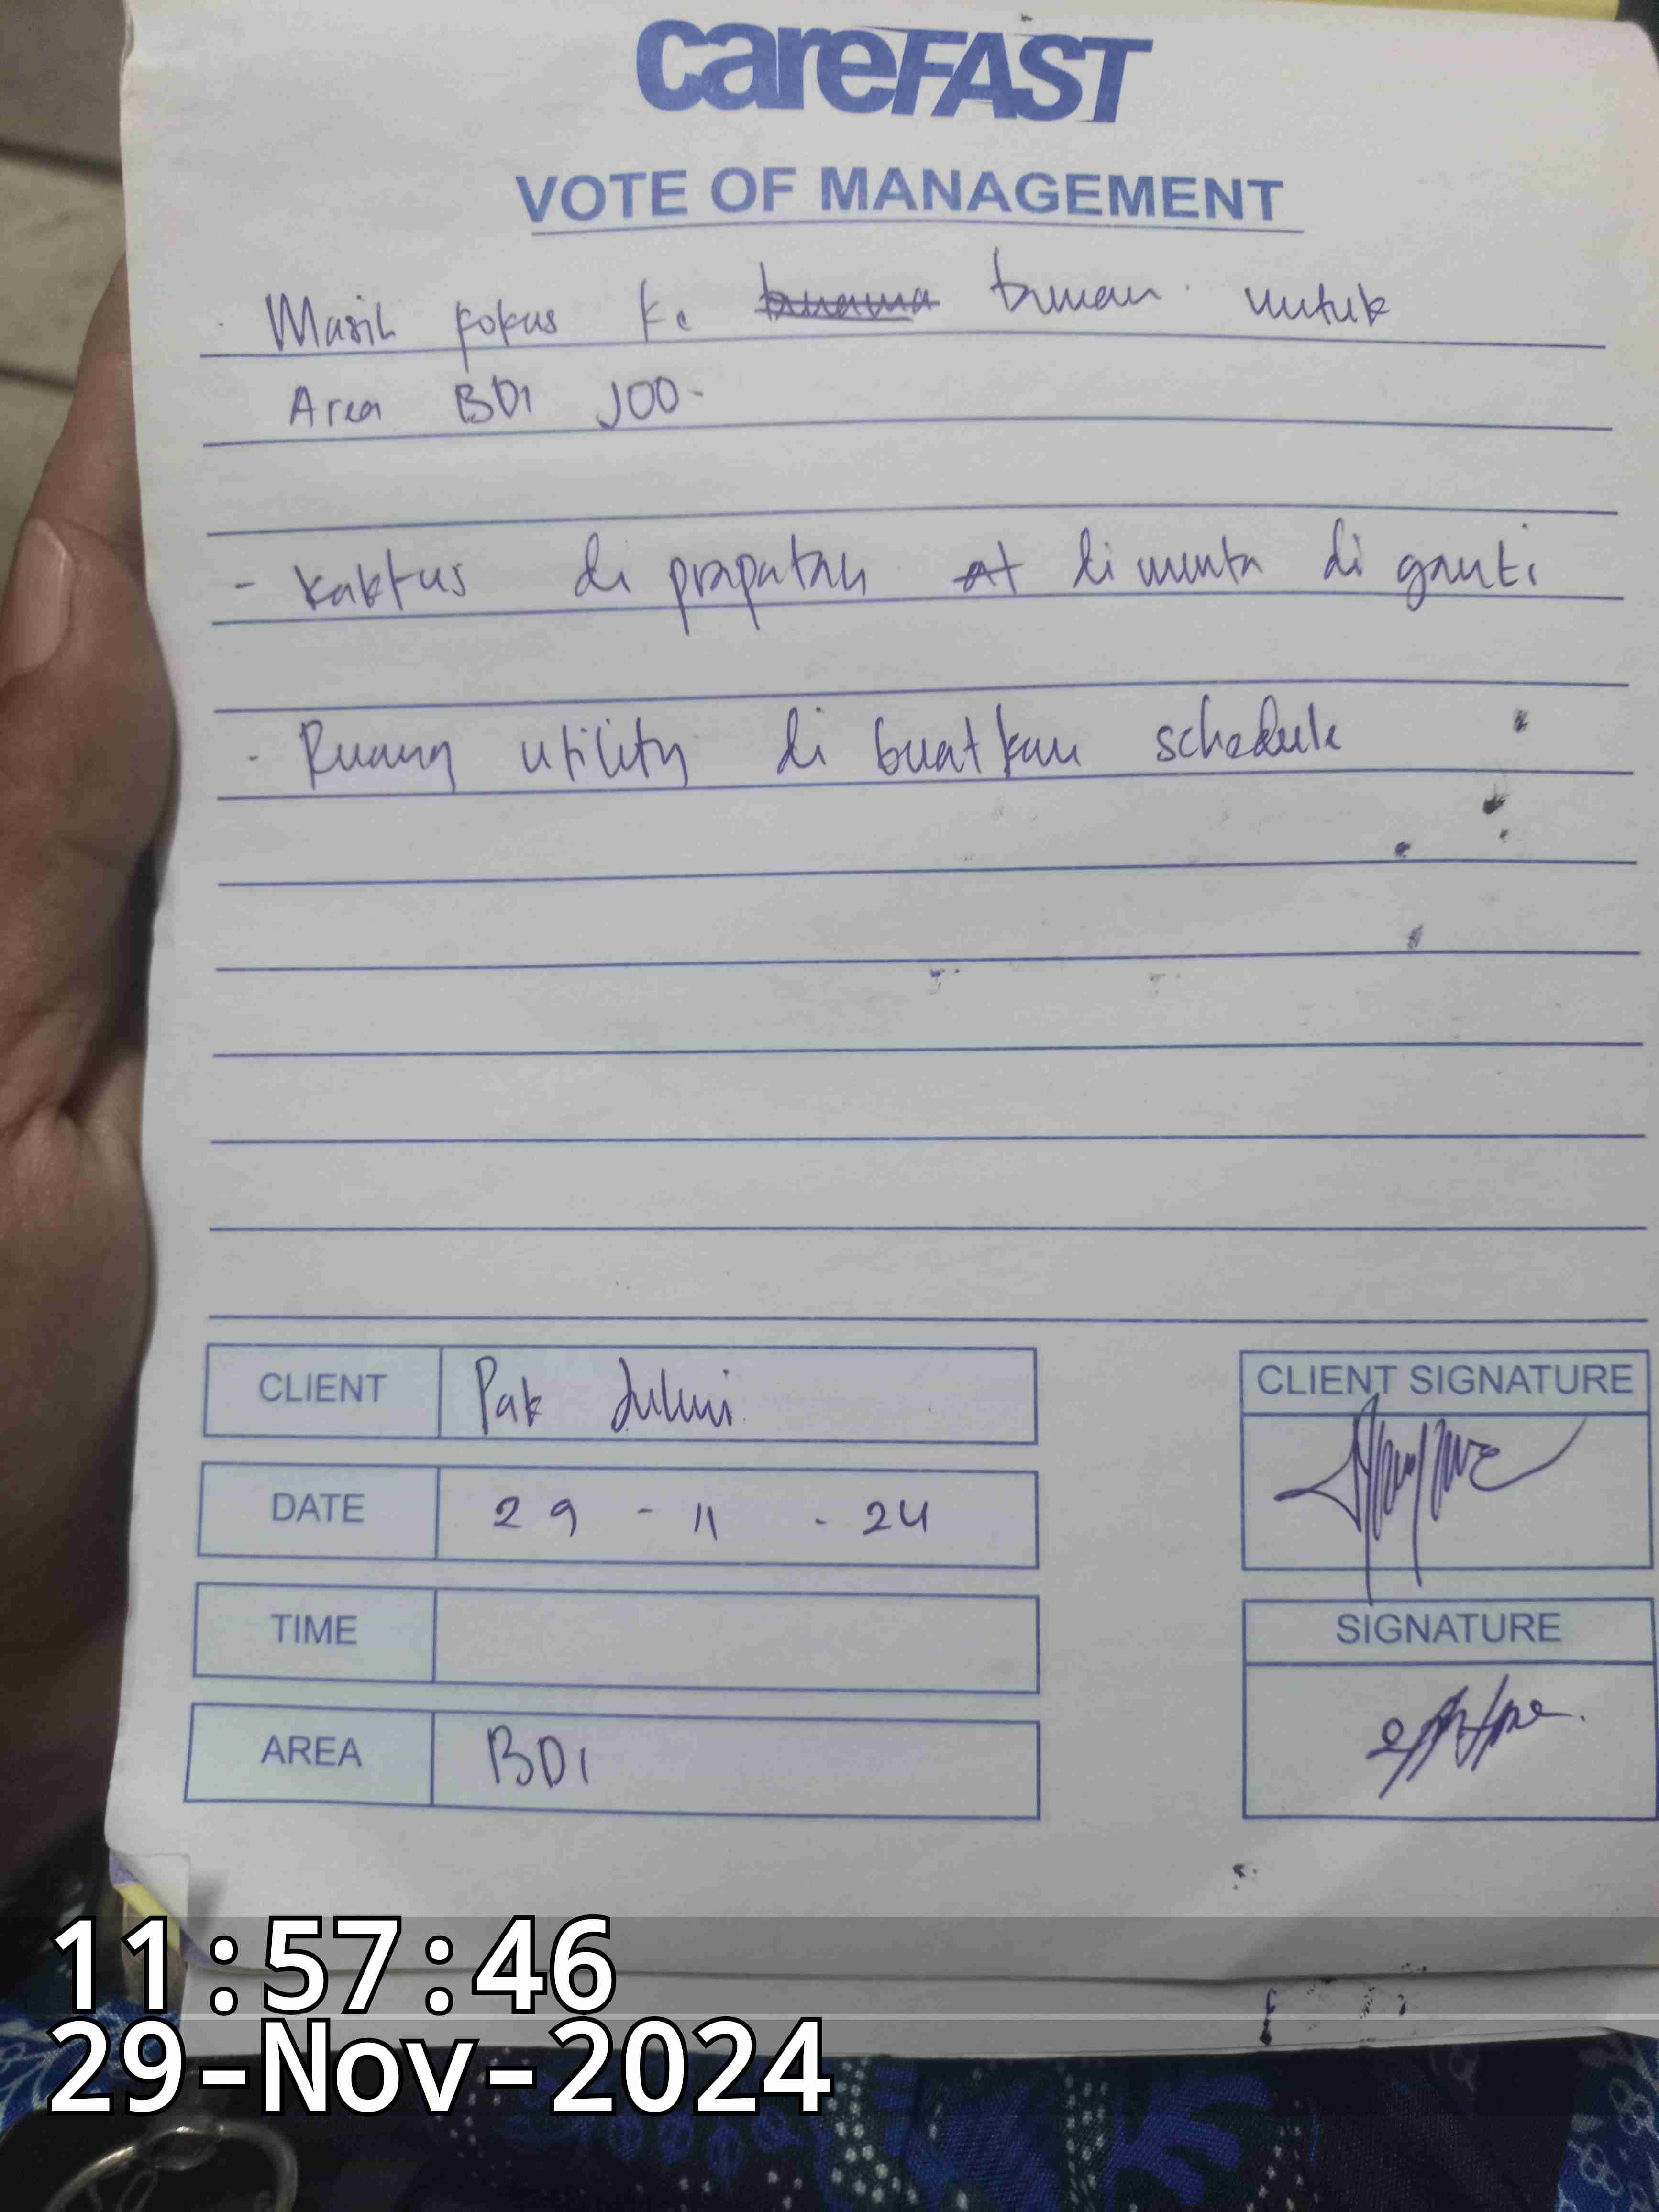 careFAST
VOTE OF MANAGEMENT
Masih fokus ke taman untuk
Area BDI JOO-
- kaktus di prapatan di minta di ganti
- Ruang utility di buatkan schedule
CLIENT Pak
DATE 29 - 11 - 24
TIME
AREA BDI
CLIENT SIGNATURE
SIGNATURE
11:57:46
29-Nov-2024